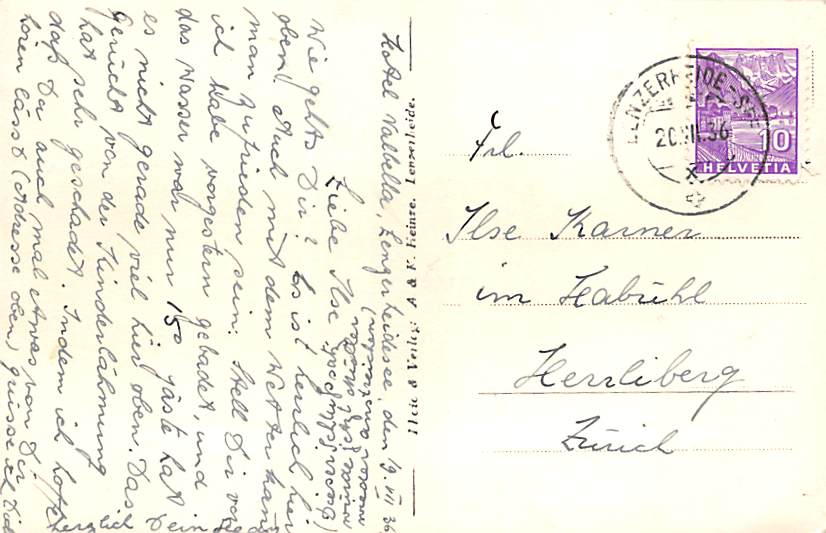 Hotel Valbella, Lenzerheidesee, den 19. VII 36
Liebe Ilse
Wie gehts Dir? Es ist herrlich hier
oben! Auch mit dem Wetter kann
man zufrieden sein. Stell Dir vor
ich habe vorgestern gebadet, und
das Wasser war nur 15° Gäste hat
es nicht gerade viel hier oben. Das
Gerücht von der Kinderlähmung
hat sehr geschadet. Indem ich hoffe
daß Du auch mal etwas von Dir
hören lässt (Adresse oben) grüsse ich Dich
herzlich Dein
A & E. Heinze, Lenzerheide.
LENZERHEIDE-SEE
20.VII.36
10
HELVETIA
Frl.
Ilse Karner
im Habühl
Herrliberg
Zürich